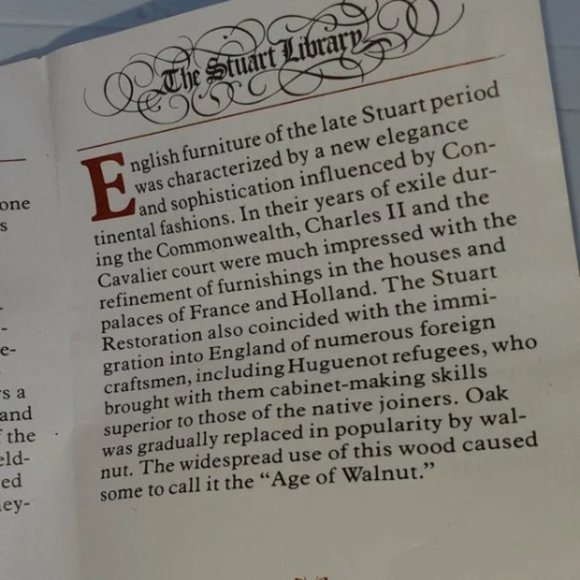 The Stuart Library
English furniture of the late Stuart period
was characterized by a new elegance
and sophistication influenced by Con-
tinental fashions. In their years of exile dur-
ing the Commonwealth, Charles II and the
Cavalier court were much impressed with the
refinement of furnishings in the houses and
palaces of France and Holland. The Stuart
Restoration also coincided with the immi-
gration into England of numerous foreign
craftsmen, including Huguenot refugees, who
brought with them cabinet-making skills
superior to those of the native joiners. Oak
was gradually replaced in popularity by wal-
nut. The widespread use of this wood caused
some to call it the “Age of Walnut.”